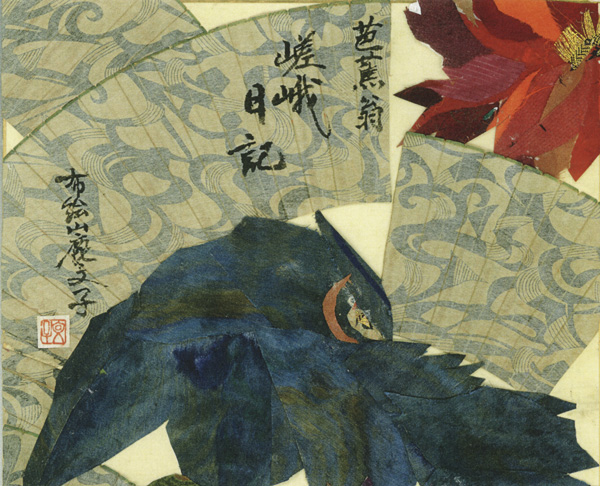 芭蕉翁
嵯峨日記
布絵山 文子